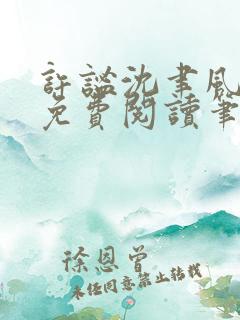 許謐沈聿風
免費閱讀筆
徐恩曾
未經同意禁止轉載